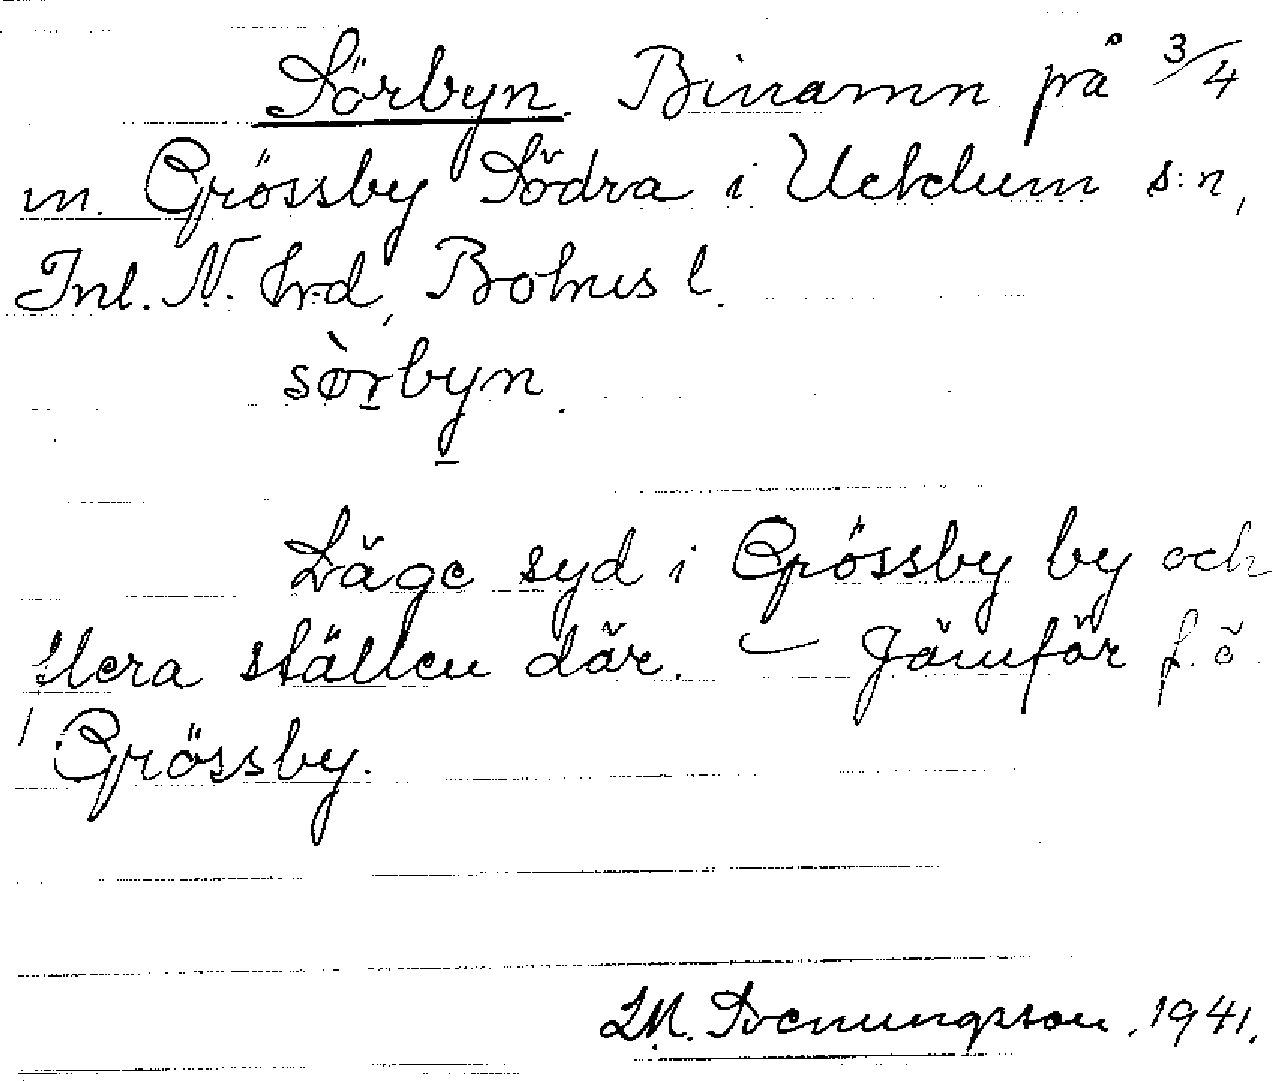 Sörbyn. Binamn på 3/4
m. Grössby Södra i Ucklum s:n,
Inl. N. hrd, Bohus l.
sòrbyn.
Läge syd i Grössby by och
flera ställen där. – Jämför f. ö.
Grössby.
1941.